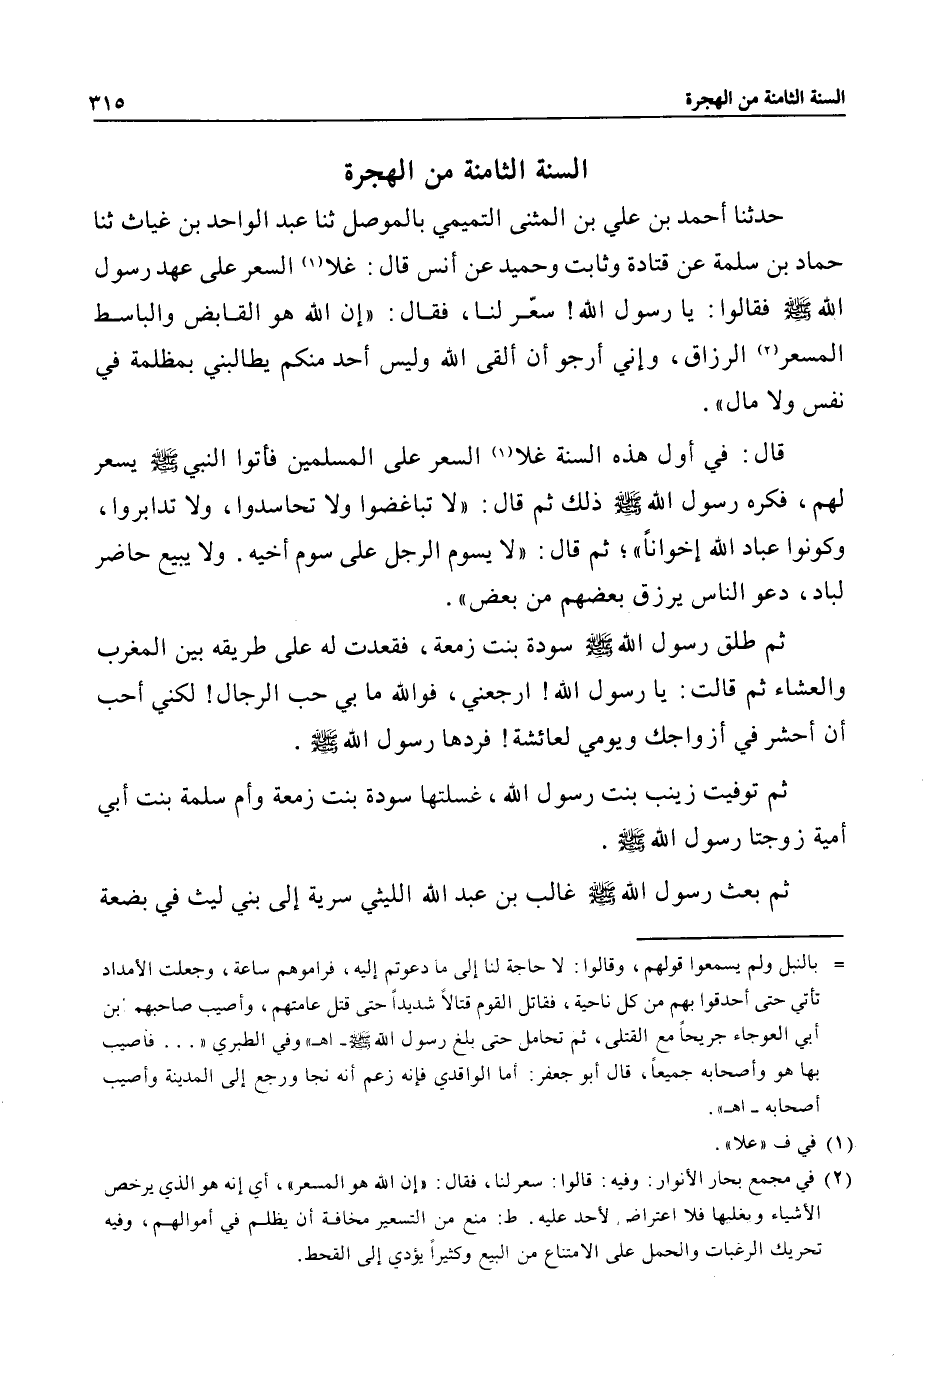 السنة الثامنة من الهجرة ٣١٥
السنة الثامنة من الهجرة
حدثنا أحمد بن علي بن المثنى التميمي بالموصل ثنا عبد الواحد بن غياث ثنا
حماد بن سلمة عن قتادة وثابت وحميد عن أنس قال: غلا(١) السعر على عهد رسول
الله ﷺ فقالوا: يا رسول الله! سعّر لنا، فقال: «إن الله هو القابض والباسط
المسعر(٢) الرزاق، وإني أرجو أن ألقى الله وليس أحد منكم يطالبني بمظلمة في
نفس ولا مال».
قال: في أول هذه السنة غلا(١) السعر على المسلمين فأتوا النبي ﷺ يسعر
لهم، فكره رسول الله ﷺ ذلك ثم قال: «لا تباغضوا ولا تحاسدوا، ولا تدابروا،
وكونوا عباد الله إخواناً»؛ ثم قال: «لا يسوم الرجل على سوم أخيه. ولا يبيع حاضر
لباد، دعو الناس يرزق بعضهم من بعض».
ثم طلق رسول الله ﷺ سودة بنت زمعة، فقعدت له على طريقه بين المغرب
والعشاء ثم قالت: يا رسول الله! ارجعني، فوالله ما بي حب الرجال! لكني أحب
أن أحشر في أزواجك ويومي لعائشة! فردها رسول الله ﷺ.
ثم توفيت زينب بنت رسول الله، غسلتها سودة بنت زمعة وأم سلمة بنت أبي
أمية زوجتا رسول الله ﷺ.
ثم بعث رسول الله ﷺ غالب بن عبد الله الليثي سرية إلى بني ليث في بضعة
= بالنبل ولم يسمعوا قولهم، وقالوا: لا حاجة لنا إلى ما دعوتم إليه، فراموهم ساعة، وجعلت الأمداد
تأتي حتى أحدقوا بهم من كل ناحية، فقاتل القوم قتالاً شديداً حتى قتل عامتهم، وأصيب صاحبهم ابن
أبي العوجاء جريحاً مع القتلى، ثم تحامل حتى بلغ رسول الله ﷺ - اهـ» وفي الطبري «... فأصيب
بها هو وأصحابه جميعاً، قال أبو جعفر: أما الواقدي فإنه زعم أنه نجا ورجع إلى المدينة وأصيب
أصحابه - اهـ».
(١) في ف «علا».
(٢) في مجمع بحار الأنوار: وفيه: قالوا: سعر لنا، فقال: «إن الله هو المسعر»، أي إنه هو الذي يرخص
الأشياء ويغليها فلا اعتراض لأحد عليه. ط: منع من التسعير مخافة أن يظلم في أموالهم، وفيه
تحريك الرغبات والحمل على الامتناع من البيع وكثيراً يؤدي إلى القحط.